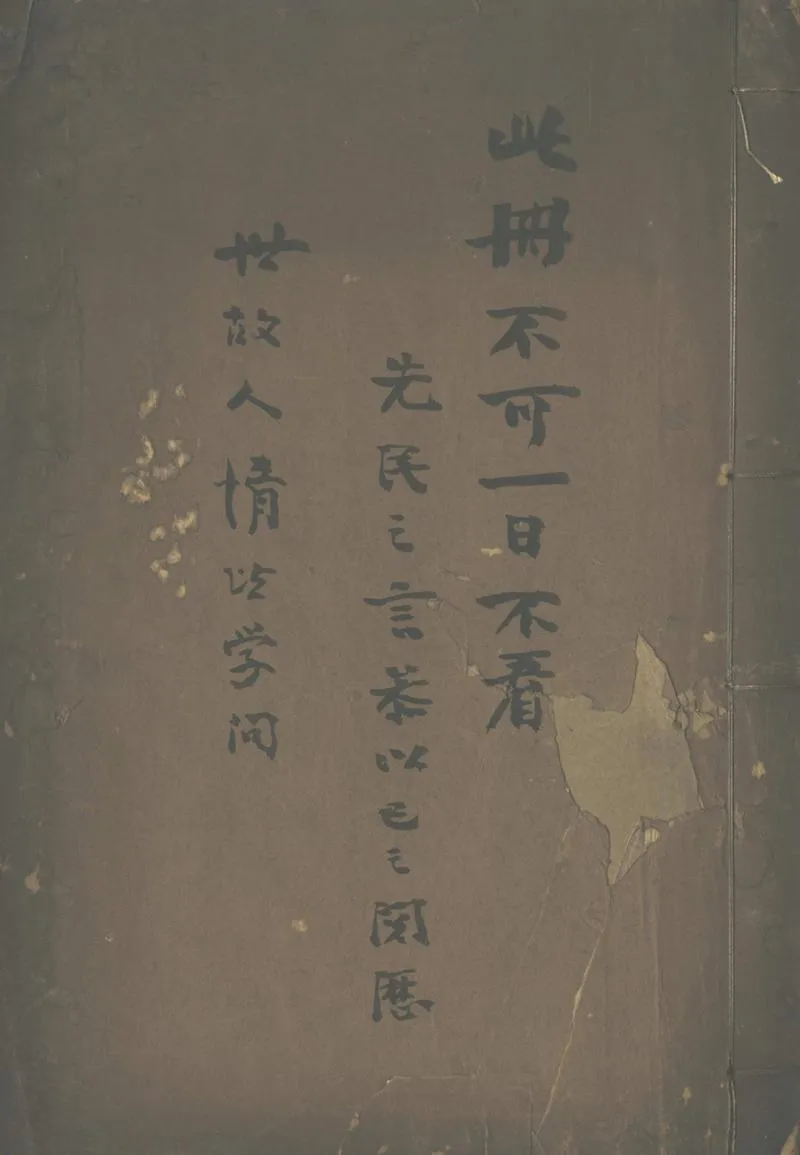 此冊不可一日不看
先民之言恭以己之閱歷
世故人情皆学问